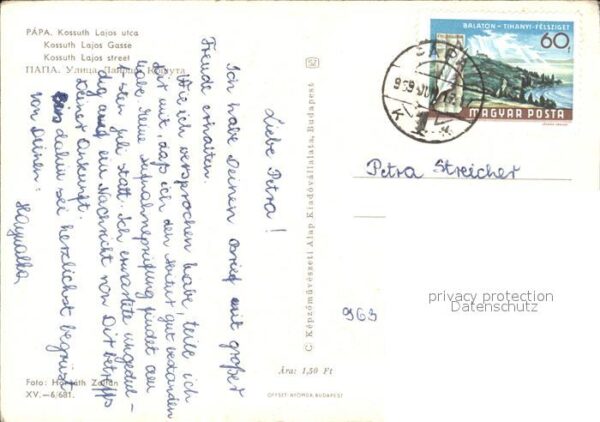 PÁPA. Kossuth Lajos utca
Kossuth Lajos Gasse
Kossuth Lajos street
ПАПА. Улица Лайоша Кошута
BALATON - TIHANYI-FÉLSZIGET
60f
MAGYAR POSTA
PÁPA
969
Petra Streicher
Liebe Petra!
Ich habe Deinen Brief mit großer
Freude erhalten.
Wie ich versprochen habe, teile ich
Dir mit, daß ich den Abitur gut bestanden
habe. Meine Aufnahmeprüfung findet am
Juli statt. Ich erwartete ungedul-
dig auf ein Nachricht von Dir betreffs
Deiner Ankunft.
Bis dahin sei herzlichst begrüsst
von Deinem:
C Képzőművészeti Alap Kiadóvállalata, Budapest
969
privacy protection
Datenschutz
Foto: Horváth Zoltán
XV.—6/681.
Ára: 1,50 Ft
OFFSET-NYOMDA BUDAPEST